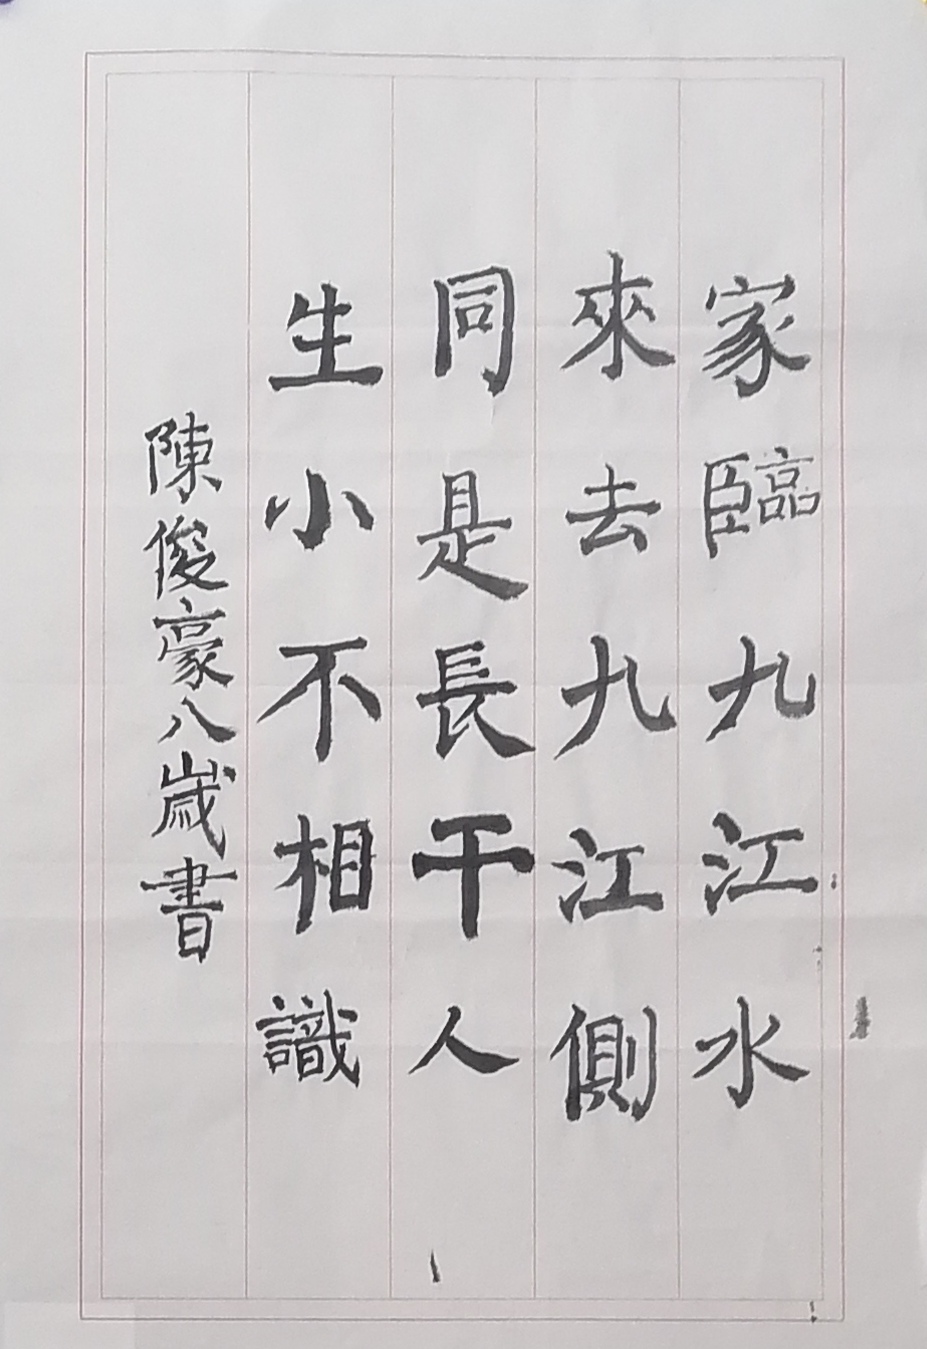 家臨九江水
來去九江側
同是長干人
生小不相識
陳俊豪八歲書